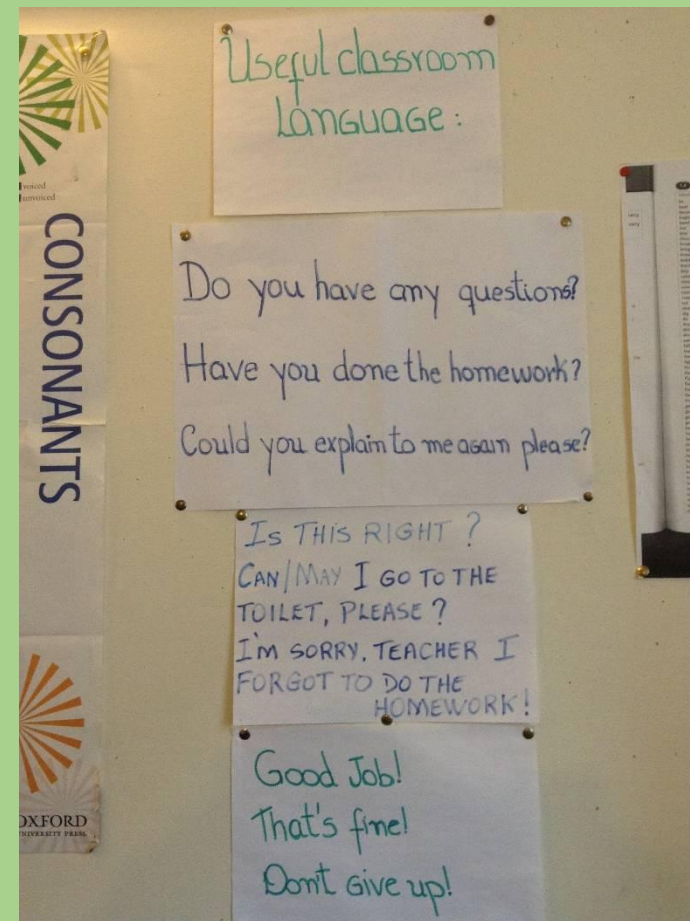 voiced
unvoiced
CONSONANTS
OXFORD
UNIVERSITY PRESS
Useful classroom
Language:
Do you have any questions?
Have you done the homework?
Could you explain to me again please?
Is THIS RIGHT?
CAN/MAY I GO TO THE
TOILET, PLEASE?
I'M SORRY, TEACHER I
FORGOT TO DO THE
HOMEWORK!
Good Job!
That's fine!
Don't Give up!